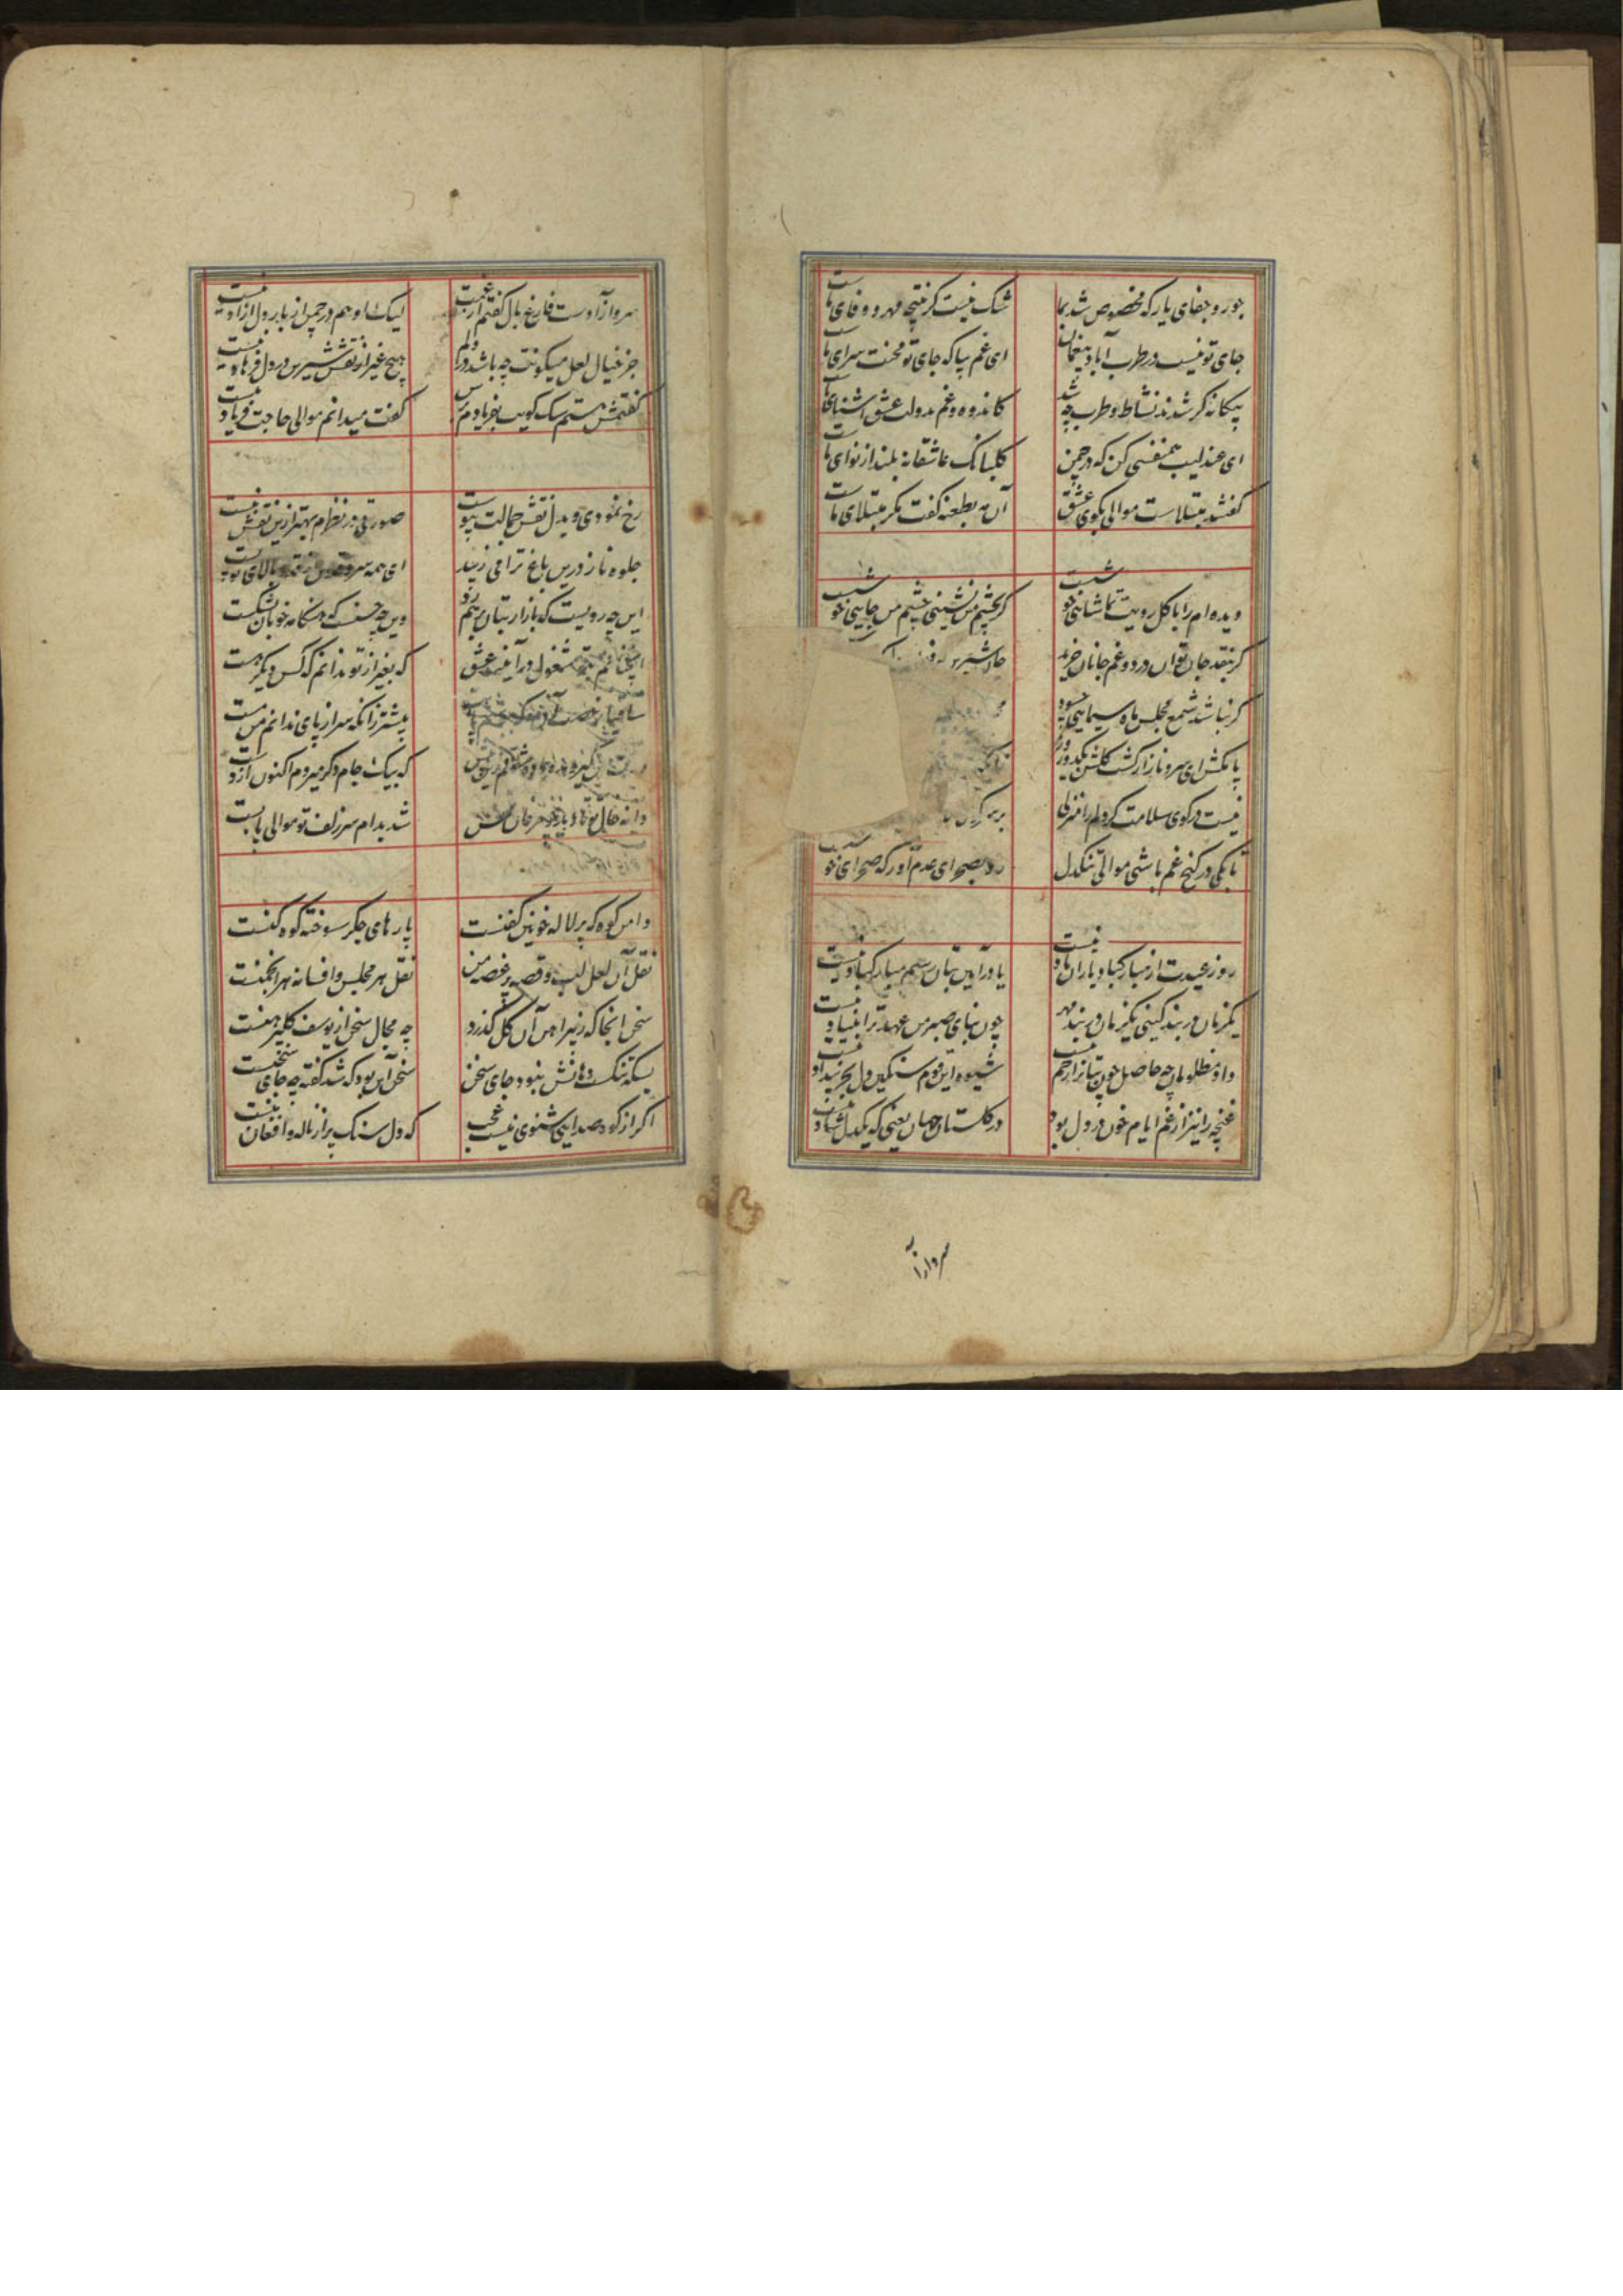 جور و جفای یار که مخصوص شد بما شک نیست کز نتیجه مهر و وفای ماست
جای تو نیست در طرب آباد بیغمان ای غم بیا که جای تو محنت سرای ماست
بیکانه کر شدند نشاط و طرب چه شد کاندوه و غم بدولت عشق اشنای ماست
ای عندلیب همنفسی کن که در چمن کلبانک عاشقانه بلند از نوای ماست
کفتند مبتلاست موالی بکوی عشق آن مه بطعنه کفت مکر مبتلای ماست
دیده ام را با کل رویت تماشایی خوشست کر بچشم من نشینی چشم من جایی خوشست
کر بنقد جان توان درد و غم جانان خرید
کر نباشد شمع مجلس ماه سیمایی چه سود
پا مکش ای سرو ناز از کشت کلشن
نیست در کوی سلامت کر دلم را منزلی
تا بکی در کنج غم باشی موالی تنکدل رو بصحرای عدم آور که صحرای خوشست
روز عیدست از مبارکباد یاران یاد نیست یا در آیین بتان رسم مبارکباد نیست
یکزمان در بند کینی یکزمان در بند مهر چون بنای صبر من عهد ترا بنیاد نیست
داد مظلومان چه حاصل چون بتانرا رحم نیست شیوه این قوم سنکین دل بجز بیداد نیست
غنچه را نیز از غم ایام خون در دل بود در کلستان جهان یعنی که یکدل شاد نیست
سرو ازا
سرو از آدست فارغ بال کفتم از غمت لیک او هم در چمن از بار دل ازاد نیست
جز خیال لعل میکونت چه باشد در دلم هیچ غیر از نقش شیرین در دل فرهاد نیست
کفتمش هستم سک کویت بفریادم برس کفت میدانم موالی حاجت فریاد نیست
رخ نمودی و بدل نقش جمالت پیوست صورتی در نظرام بهتر ازین نقش نبست
جلوه ناز درین باغ ترا می زیبد ای همه سرو بالای تو پست
این چه رویست که بازار بتان بر هم زد وین چه حسنست که هنکامه خوبان بشکست
مشغول در آیینه عشق که بغیر از تو ندانم که کس دیکر هست
پیشتر زانکه سر از پای ندانم من مست
که بیک جام دکر میروم اکنون از دست
دانه خال تو شد بدام سر زلف تو موالی پابست
دامن کوه که پر لاله خونین کفنست پارهای جکر سوخته کوه کنست
نقل آن لعل لب و قصه پر غصه من نقل هر مجلس و افسانه هر انجمنست
سخن انجا که ز پیراهن آن کل کذرد چه مجال سخن از یوسف کل پیرهنست
بسکه تنکست دهانش نبود جای سخن سخن آن بود که شد کفته چه جای سخنست
اکر از کوه صدایی شنوی نیست عجب که دل سنک پر از ناله و افغان منست